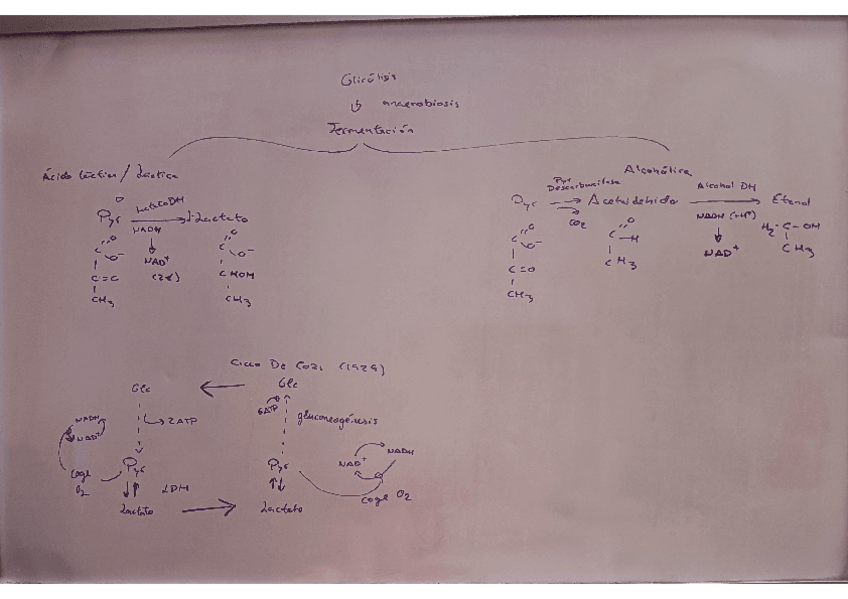 Glicólisis
↓ anaerobiosis
Fermentación
Ácido láctica / Láctica
Pyr → Lactato
Lactato DH
NADH
NAD⁺
(2e)
C=O
O⁻
C=C
CH₃
C=O
O⁻
CHOH
CH₃
Alcohólica
Pyr → Acetaldehido → Etanol
Pyr
Descarboxilasa
CO₂
Alcohol DH
NADH (+H⁺)
NAD⁺
C=O
O⁻
C=O
CH₃
C=O
H
CH₃
H₂C-OH
CH₃
Ciclo De Cori (1929)
Glc ← Glc
2ATP
6ATP
gluconeogénesis
NADH
NAD⁺
Pyr
Coge
O₂
LDH
Lactato → Lactato
Pyr
NAD⁺
NADH
coge O₂